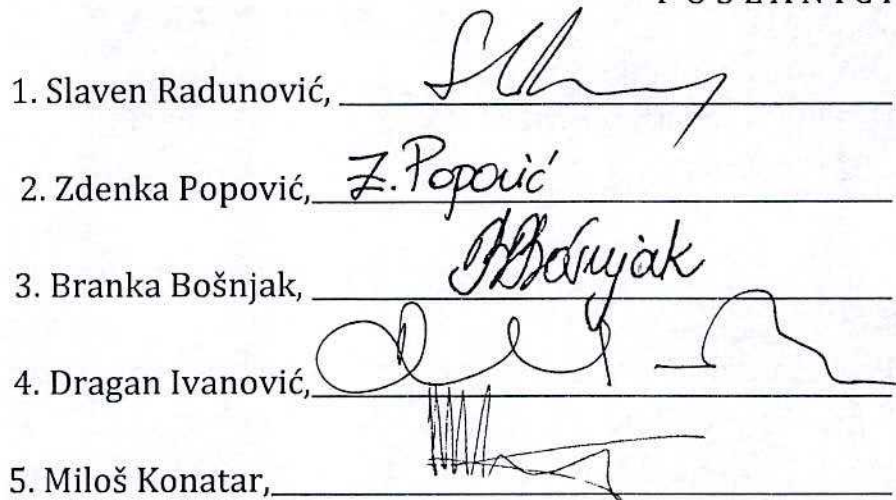 1. Slaven Radunović,
2. Zdenka Popović, Z. Popović
3. Branka Bošnjak, BBošnjak
4. Dragan Ivanović,
5. Miloš Konatar,